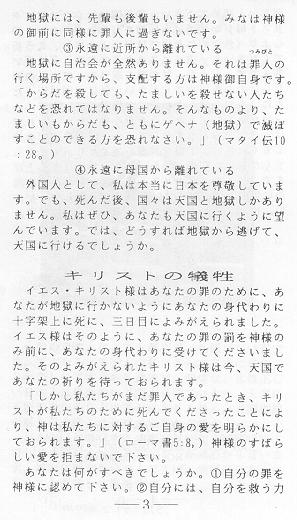 地獄には、先輩も後輩もいません。みなは神様
の御前に同様に罪人に過ぎないです。
③永遠に近所から離れている
つみびと
地獄に自治会が全然ありません。それは罪人の
行く場所ですから、支配する方は神様御自身です。
「からだを殺しても、たましいを殺せない人たち
などを恐れてはなりません。そんなものより、た
ましいもからだも、ともにゲヘナ（地獄）で滅ぼ
すことのできる方を恐れなさい。」（マタイ伝10
：28。）
④永遠に母国から離れている
外国人として、私は本当に日本を尊敬していま
す。でも、死んだ後、国々は天国と地獄しかあり
ません。私はぜひ、あなたも天国に行くように望
んでいます。では、どうすれば地獄から逃げて、
天国に行けるでしょうか。
キリストの犠牲
イエス・キリスト様はあなたの罪のために、あ
なたが地獄に行かないようにあなたの身代わりに
十字架上に死に、三日目によみがえられました。
イエス様はそのように、あなたの罪の罰を神様の
み前に、あなたの身代わりに受けてくださいまし
た。そのよみがえられたキリスト様は今、天国で
あなたの祈りを待っておられます。
「しかし私たちがまだ罪人であったとき、キリ
ストが私たちのために死んでくださったことによ
り、神は私たちに対するご自身の愛を明らかにし
ておられます。」（ローマ書5:8,）神様のすばら
しい愛を拒まないで下さい。
あなたは何がすべきでしょうか。①自分の罪を
神様に認めて下さい。②自分には、自分を救う力
— 3 —